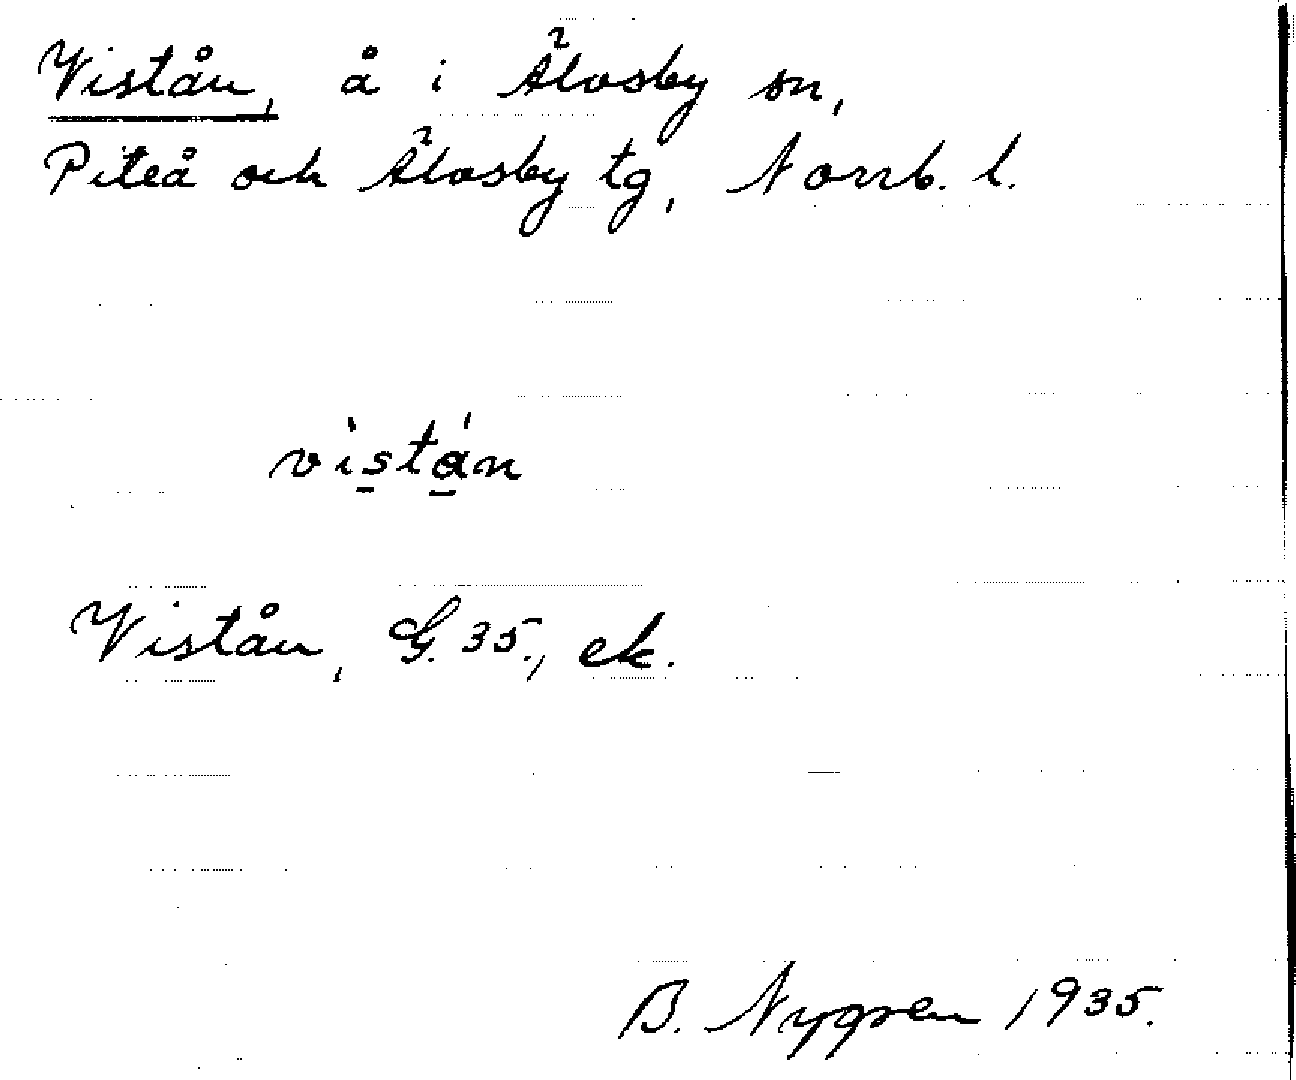 Vistån, å i Älvsby sn,
Piteå och Älvsby tg, Norrb. l.
vìstán
Vistån, G. 35., ek.
B. Nygren 1935.